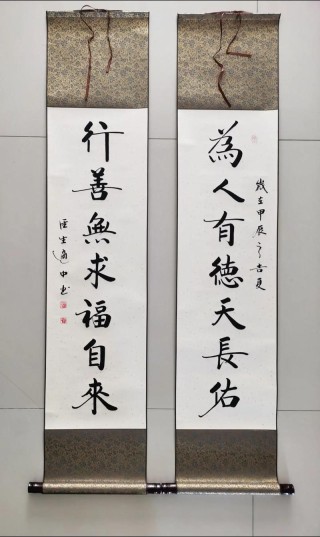 為人有德天長佑
歲在甲辰之吉夏
行善無求福自來
適中書